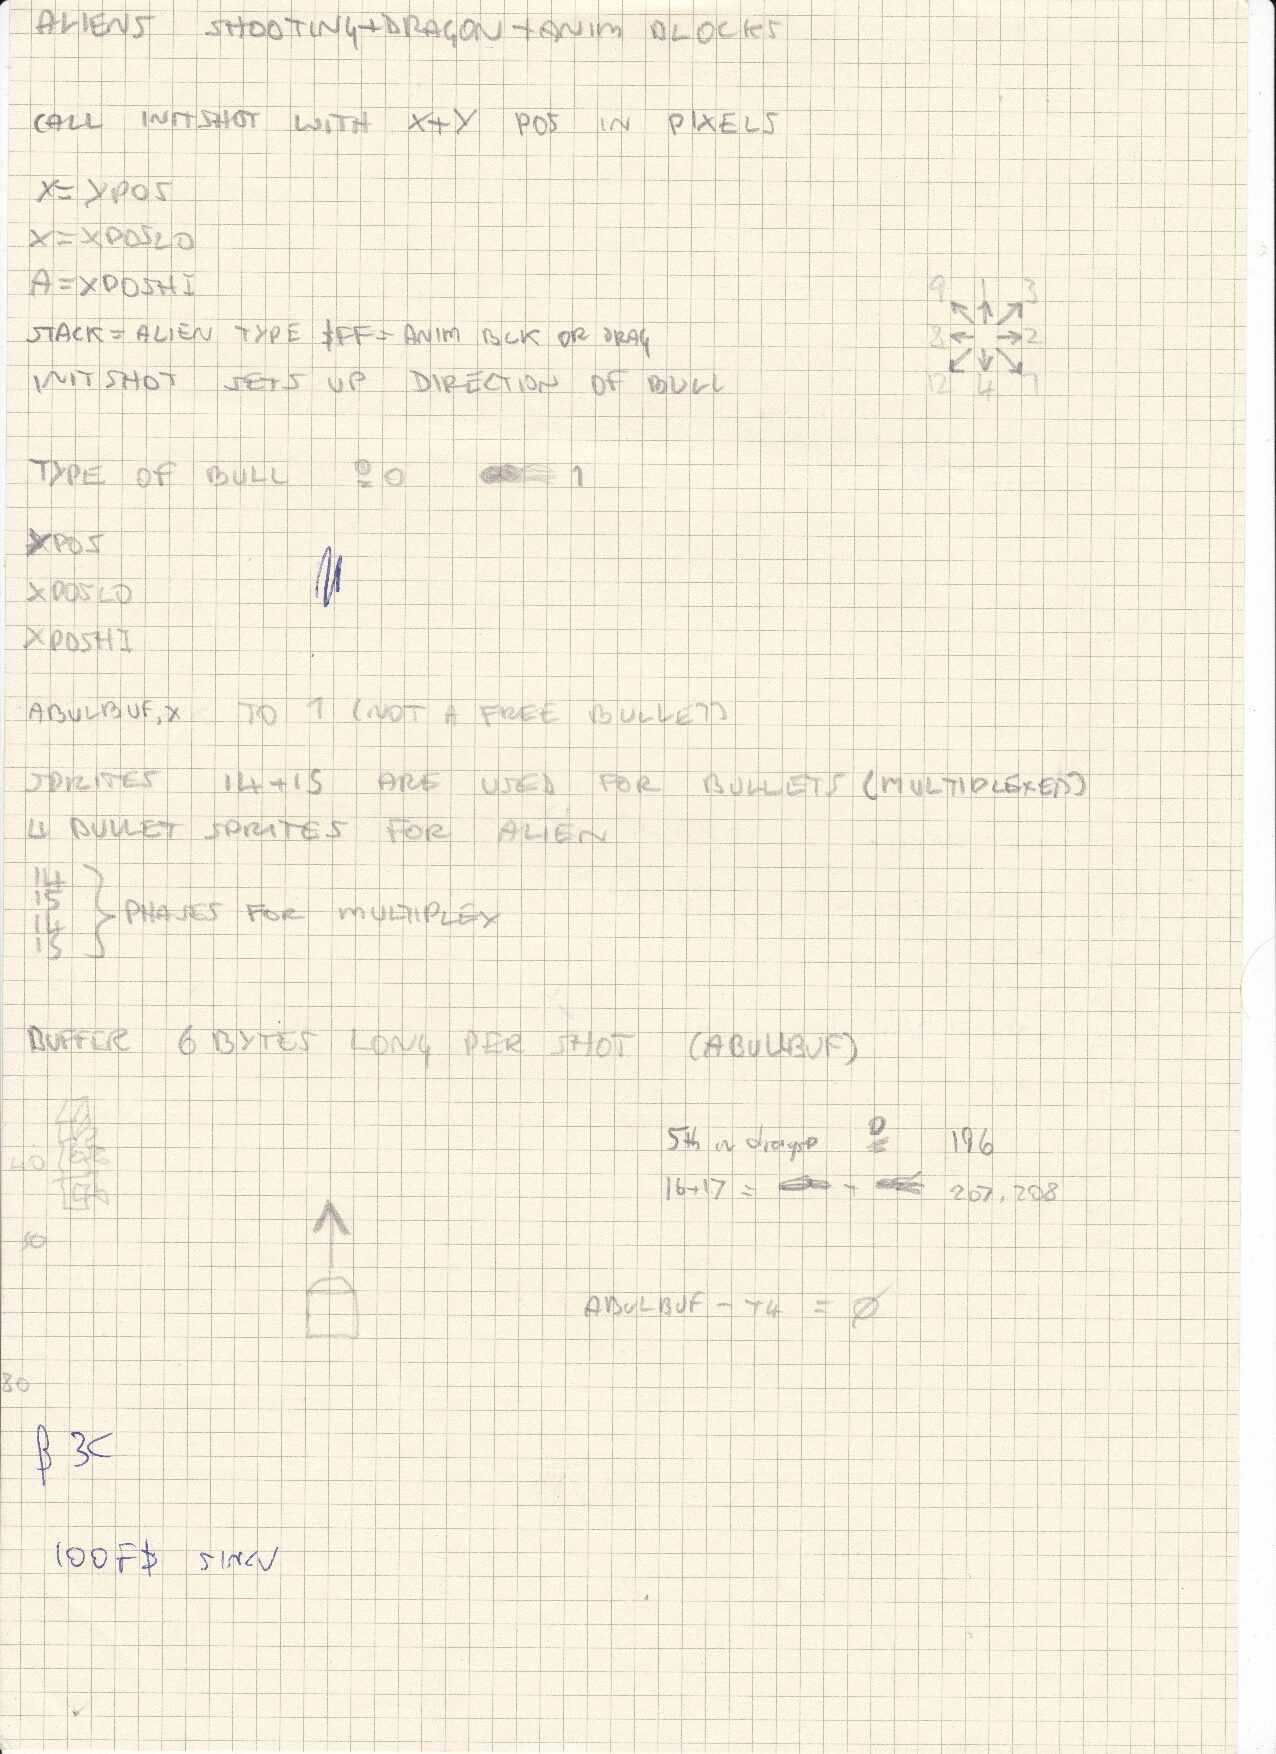 ALIENS SHOOTING+DRAGON+ANIM BLOCKS
CALL INITSHOT WITH X+Y POS IN PIXELS
Y=YPOS
X=XPOSLO
A=XPOSHI
STACK=ALIEN TYPE $FF=ANIM BCK OR DRAG
INITSHOT SETS UP DIRECTION OF BULL
9 1 3
8 2
12 4
TYPE OF BULL 0 1
YPOS
XPOSLO
XPOSHI
ABULBUF,X TO 1 (NOT A FREE BULLET)
SPRITES 14+15 ARE USED FOR BULLETS (MULTIPLEXED)
4 BULLET SPRITES FOR ALIEN
14
15
14
15
PHASES FOR MULTIPLEX
BUFFER 6 BYTES LONG PER SHOT (ABULBUF)
5th in 196
16+17 = + 207, 208
40
50
ABULBUF - +4 = Ø
80
3C
100F$